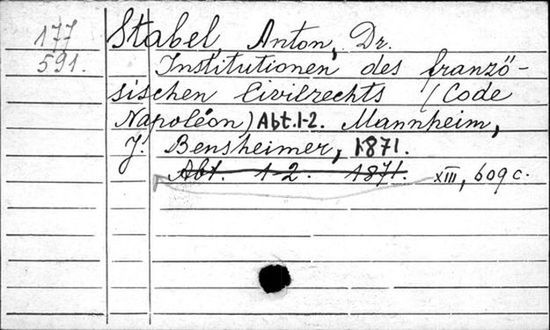 177 Stabel, Anton, Dr.
591. Institutionen des franzö-
sischen Civilrechts (Code
Napoléon) Abt. 1-2. Mannheim,
J. Bensheimer, 1871.
Abt. 1-2. 1871. XIII, 609 c.